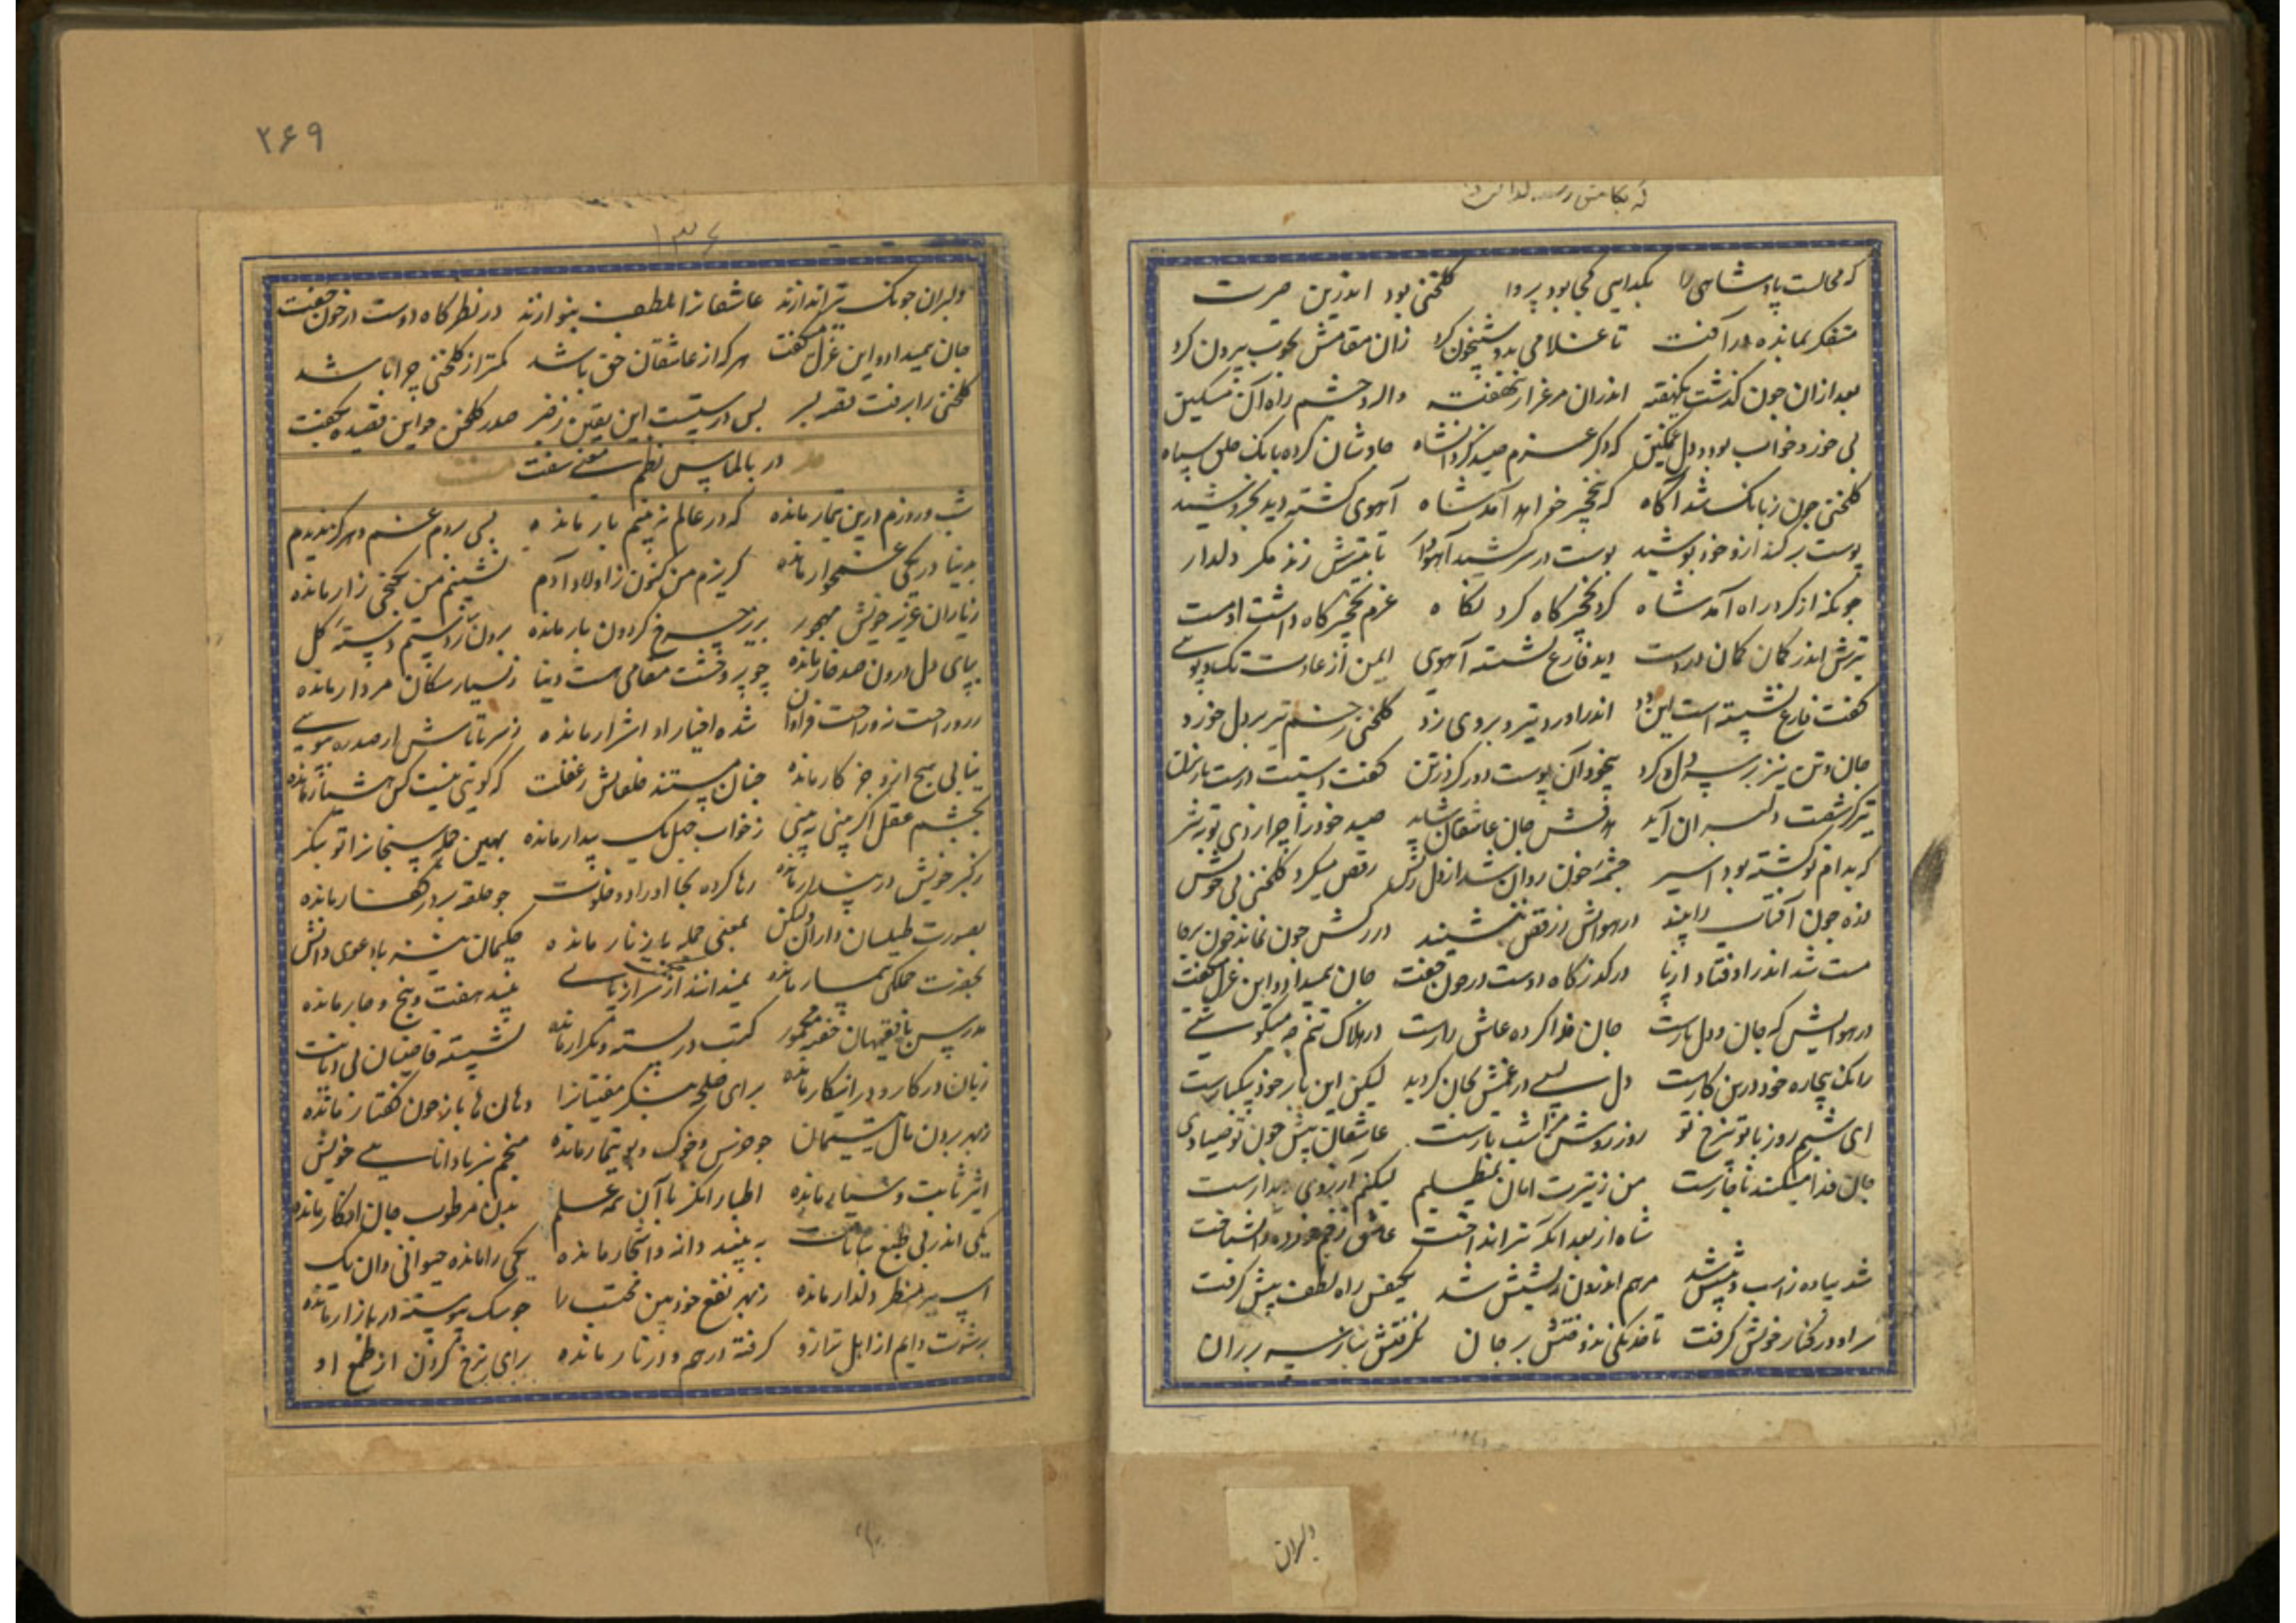 که محالست پادشاهی را بگدایی کجا بود پروا گلخنی بود اندرین حیرت
متفکر بمانده در آفت تا غلامی بدو شبیخون کرد زان مقامش بچوب بیرون کرد
بعد ازان چون گذشت یکهفته اندران مرغزار بنهفته واله و چشم راه آن مسکین
بی خور و خواب بود و دل غمگین که دگر عزم صید کرد آنشاه چاوشان کرده بانک خلق سپاه
گلخنی چون ز بانک شد آگاه که بنخچیر خواهد آمد شاه آهوی کشته دید بخروشید
پوست برکند ازو و خود پوشید پوست در سر کشید آهووار تا بتیرش زند مگر دلدار
چونکه از گرد راه آمد شاه گرد نخچیرگاه کرد نگاه عزم نخچیرگاه داشت او دست
تیرش اندر کمان کمان در دست دید فارغ نشسته آهوی ایمن از عادت تکاپوی
گفت فارغ نشسته است این دد اندر آورد تیر و بروی زد گلخنی زخم تیر بر دل خورد
جان و تن نیز بر سر دل کرد بیخود آن پوست دور کرد ز تن گفت دستیت درست باز بزن
تیر کز شست دلبران آید هدفش جان عاشقان شاید صید خود را چرا زدی تو بتیر
که بدام تو گشته بود اسیر چشمه خون روان شد از دل ریش رقص میکرد گلخنی بی خویش
ذره چون آفتاب را بیند در هوایش ز رقص ننشیند در رگش چون نماند خون برجا
مست شد اندر اوفتاد از پا در گذرگاه دوست در خون خفت جان بمیداد و این غزل میگفت
در هوایش که جان و دل بارست جان فدا کرده عاشق زارست در هلاک تنم چه میکوشی
زانک بیچاره خود درین کارست دل بسی در غمش بجان گردید لیکن این بار خود بیکبارست
ای شبم روز با تو بی رخ تو روز روشن مرا شب تارست عاشقان پیش چون تو صیادی
جان فدا میکنند ناچارست من ز تیرت امان نمیطلبم لیکنم آرزوی دیدارست
شاه از بعد آنکه تیر انداخت عاشق زخم خورده را بشناخت
شد پیاده ز اسب و پیشش شد مرهم اندرون ریشش شد یکنفس راه لطف پیش گرفت
سر او در کنار خویش گرفت تا خدنگی نزد متش بر جان نگرفتش بناز سر بر ران
دلبران
۲۶۹
۱۳۶
دلبران چونک تیر اندازند عاشقانرا بلطف بنوازند در نظرگاه دوست در خون خفت
جان بمیداد و این غزل میگفت هر که از عاشقان حق باشد کمتر از گلخنی چرا باشد
گلخنی را برفت قصه بسر بس درستیست این یقین ز خبر صدر گلخن چو این قصیده بگفت
در بالماس نظم معنی سفت
شب و روزم درین تیمار مانده که در عالم نه بینم یار مانده بسی بردم غم و هرگز ندیدم
بدنیا در یکی غمخوار مانده گریزم من کنون ز اولاد آدم نشینم من بکنجی زار مانده
ز یاران عزیز خویش مهجور بزیر چرخ گردون بار مانده برون نارد نسیم دسته گل
بپای دل درون صد خار مانده چو پر وحشت مقامی هست دنیا ز بسیار سگان مردار مانده
شده اخیار او اشرار مانده ز سر تا پاش ار صد ره بپویی
نیابی هیچ ازو جز کار مانده چنان مستند خلقانش ز غفلت که گویی نیست کس هشیار مانده
بچشم عقل اگر بینی نه بینی ز خواب جهل یک بیدار مانده بهین جمله شیخانرا تو بنگر
ز کبر خویش در پندار مانده رها کرده بجا اوراد و خلوت چو حلقه بر در کفار مانده
بصورت طیلسان داران ولیکن بمعنی جمله با زنار مانده حکیمان نیز با دعوی دانش
بحضرت جملگی بیمار مانده نمیدانند از سر الهی بغیر هفت و پنج و چار مانده
مدرس با فقیهان خفته مخمور کتب در بسته و تکرار مانده نشسته قاضیان بی دیانت
زبان در کار و در انکار مانده برای صلح بنگر مفتیانرا دهان ها باز چون کفتار مانده
ز بهر بردن مال یتیمان چو خرس و خوک و بوتیمار مانده منجم نیز با دانایی خویش
اثیر ثابت و سیار مانده اطبا را نگر با آن همه علم بدن مرطوب جان افکار مانده
یکی اندر پی طبع نباتات به بیند دانه و اشجار مانده یکی را مانده حیوانی و آن یک
اسیر منظر دلدار مانده ز بهر نفع خود بین محتسب را چو سگ پیوسته در بازار مانده
برشوت دایم از اهل ترازو گرفته درهم و دینار مانده برای نرخ کردن از طمع او